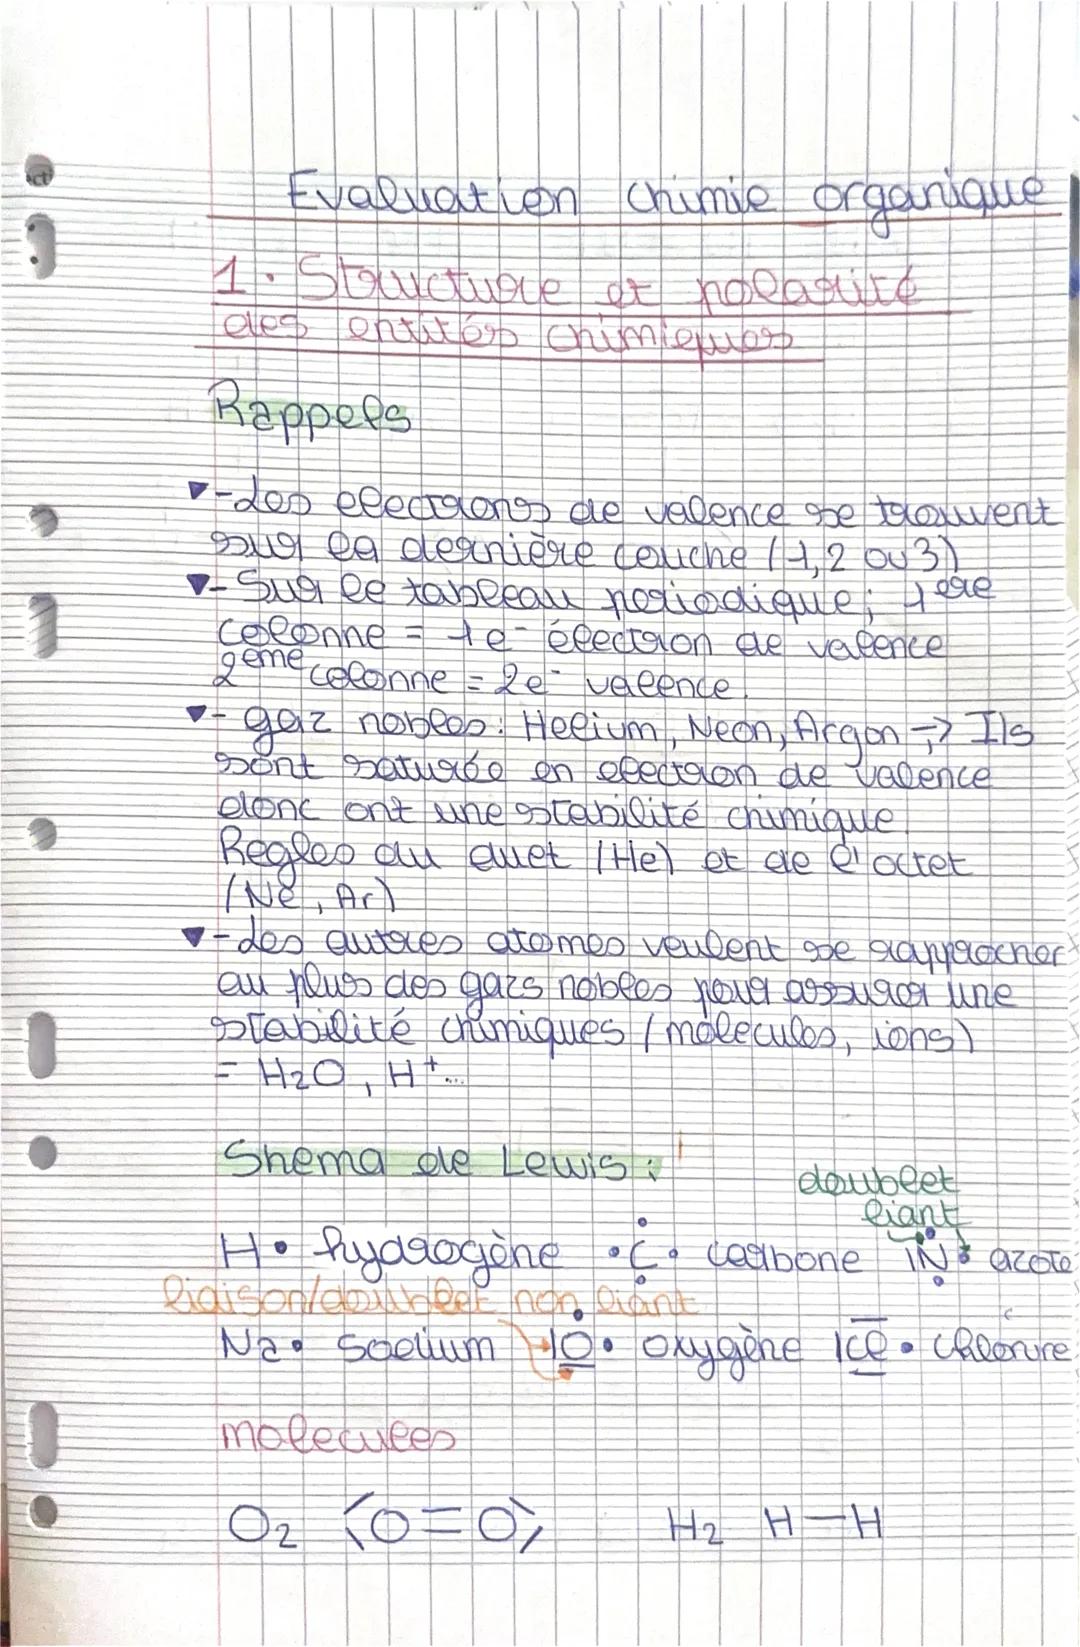 Evaluation chimie organique
1. Structure et polarité
des entités chimiques
Rappels
- Les electrons de valence se trouvent
sur la dernière couche (1, 2 ou 3)
- Sur le tableau periodique ; 1ere
colonne = 1 e- électron de valence
2eme colonne = 2e- valence.
- gaz nobles : Helium, Neon, Argon -> Ils
sont saturés en electron de valence
donc ont une stabilité chimique.
Regles du duet (He) et de l'octet
(Ne, Ar)
- Les autres atomes veulent se rapprocher
au plus des gazs nobles pour assurer une
stabilité chimiques (molecules, ions)
= H2O, H+...
Shema de Lewis :
doublet
liant
H• hydrogène •C• carbone |N• azote
liaison/doublet non liant
Na• Sodium |O• oxygène |Cl• Chlorure
molecules
O2 O=O H2 H—H